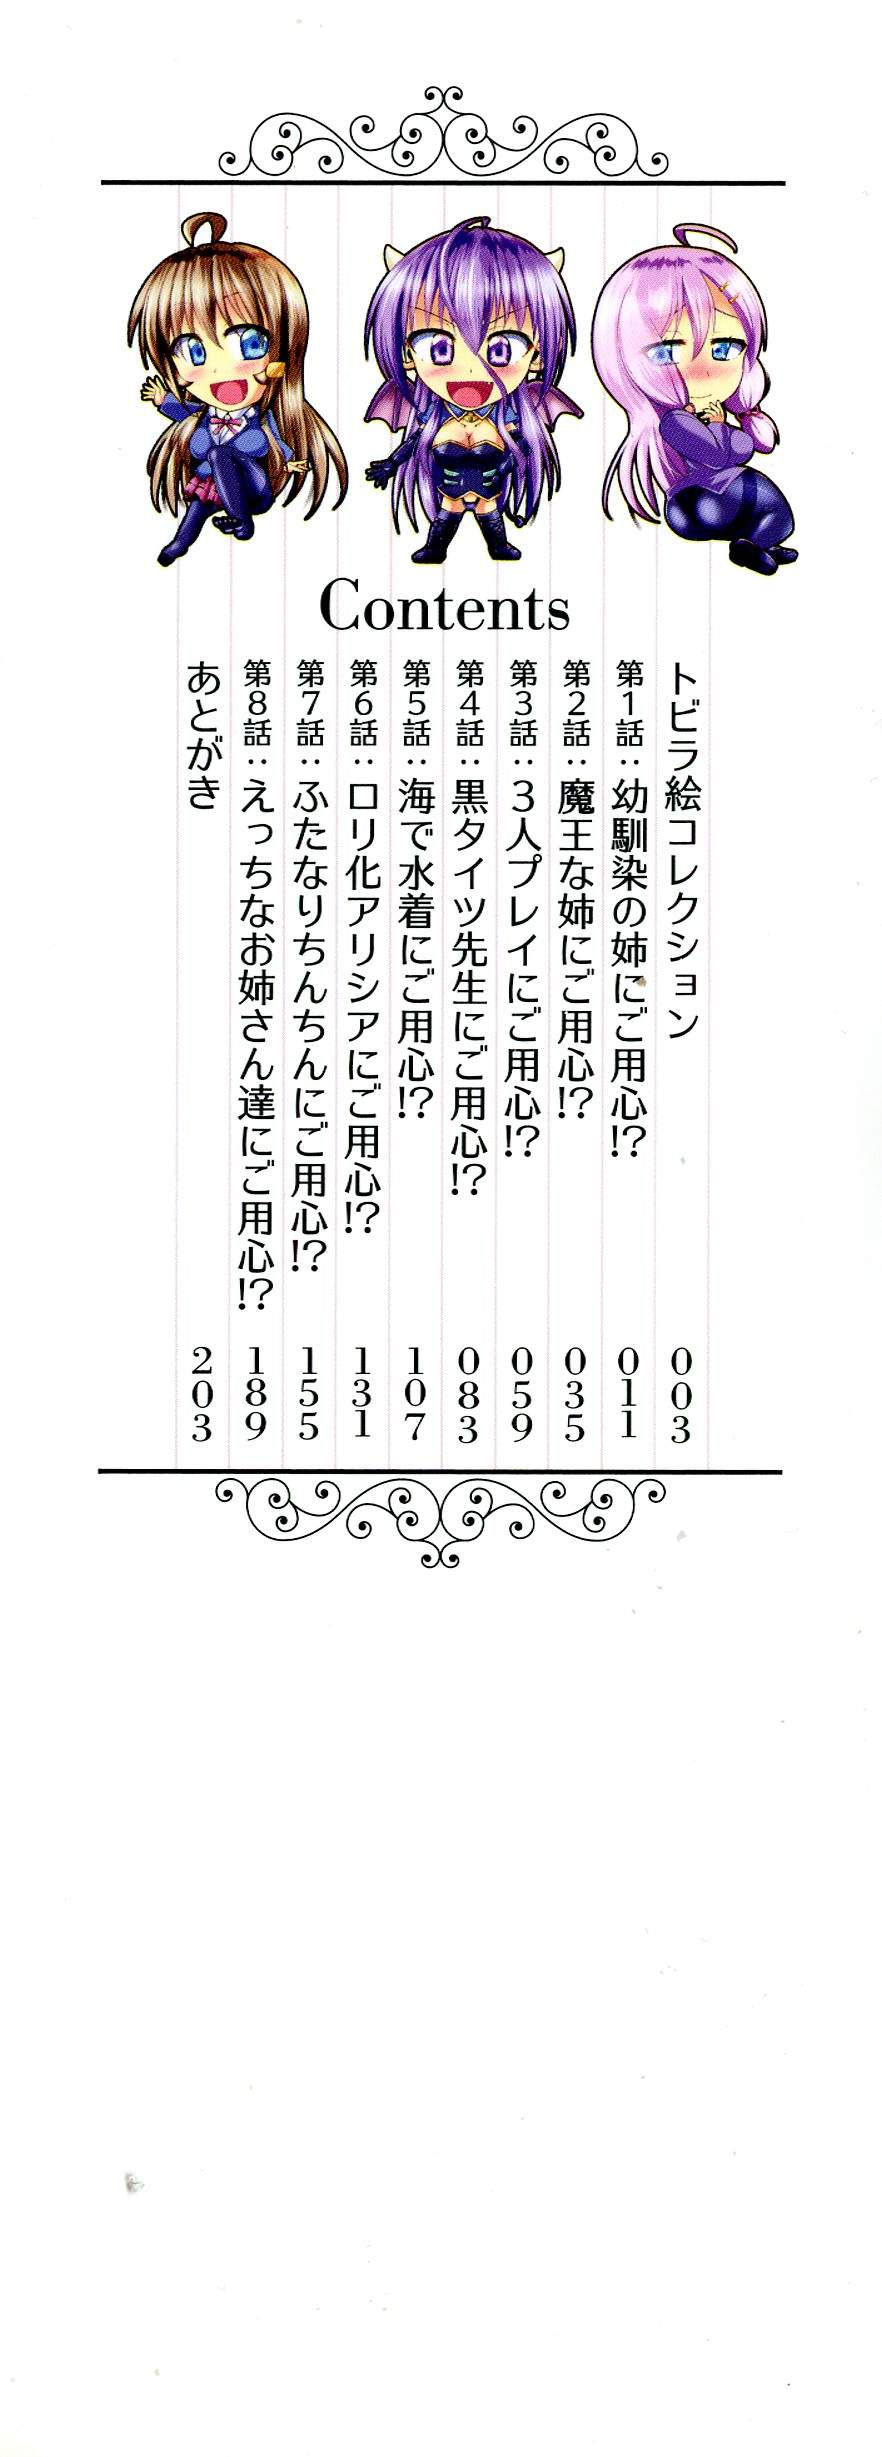 Contents
トビラ絵コレクション 003
第1話：幼馴染の姉にご用心!? 011
第2話：魔王な姉にご用心!? 035
第3話：3人プレイにご用心!? 059
第4話：黒タイツ先生にご用心!? 083
第5話：海で水着にご用心!? 107
第6話：ロリ化アリシアにご用心!? 131
第7話：ふたなりちんちんにご用心!? 155
第8話：えっちなお姉さん達にご用心!? 189
あとがき 203